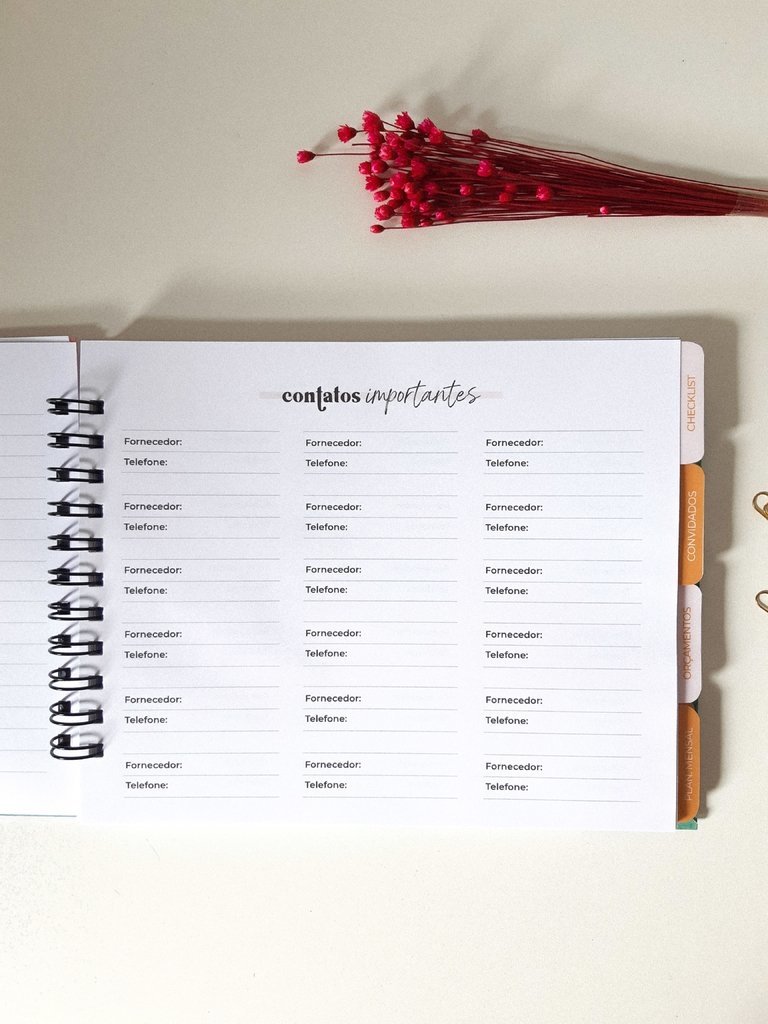 contatos importantes
Fornecedor:
Telefone:
Fornecedor:
Telefone:
Fornecedor:
Telefone:
Fornecedor:
Telefone:
Fornecedor:
Telefone:
Fornecedor:
Telefone:
Fornecedor:
Telefone:
Fornecedor:
Telefone:
Fornecedor:
Telefone:
Fornecedor:
Telefone:
Fornecedor:
Telefone:
Fornecedor:
Telefone:
Fornecedor:
Telefone:
Fornecedor:
Telefone:
Fornecedor:
Telefone:
Fornecedor:
Telefone:
Fornecedor:
Telefone:
Fornecedor:
Telefone:
CHECKLIST
CONVIDADOS
ORÇAMENTOS
PLAN. MENSAL